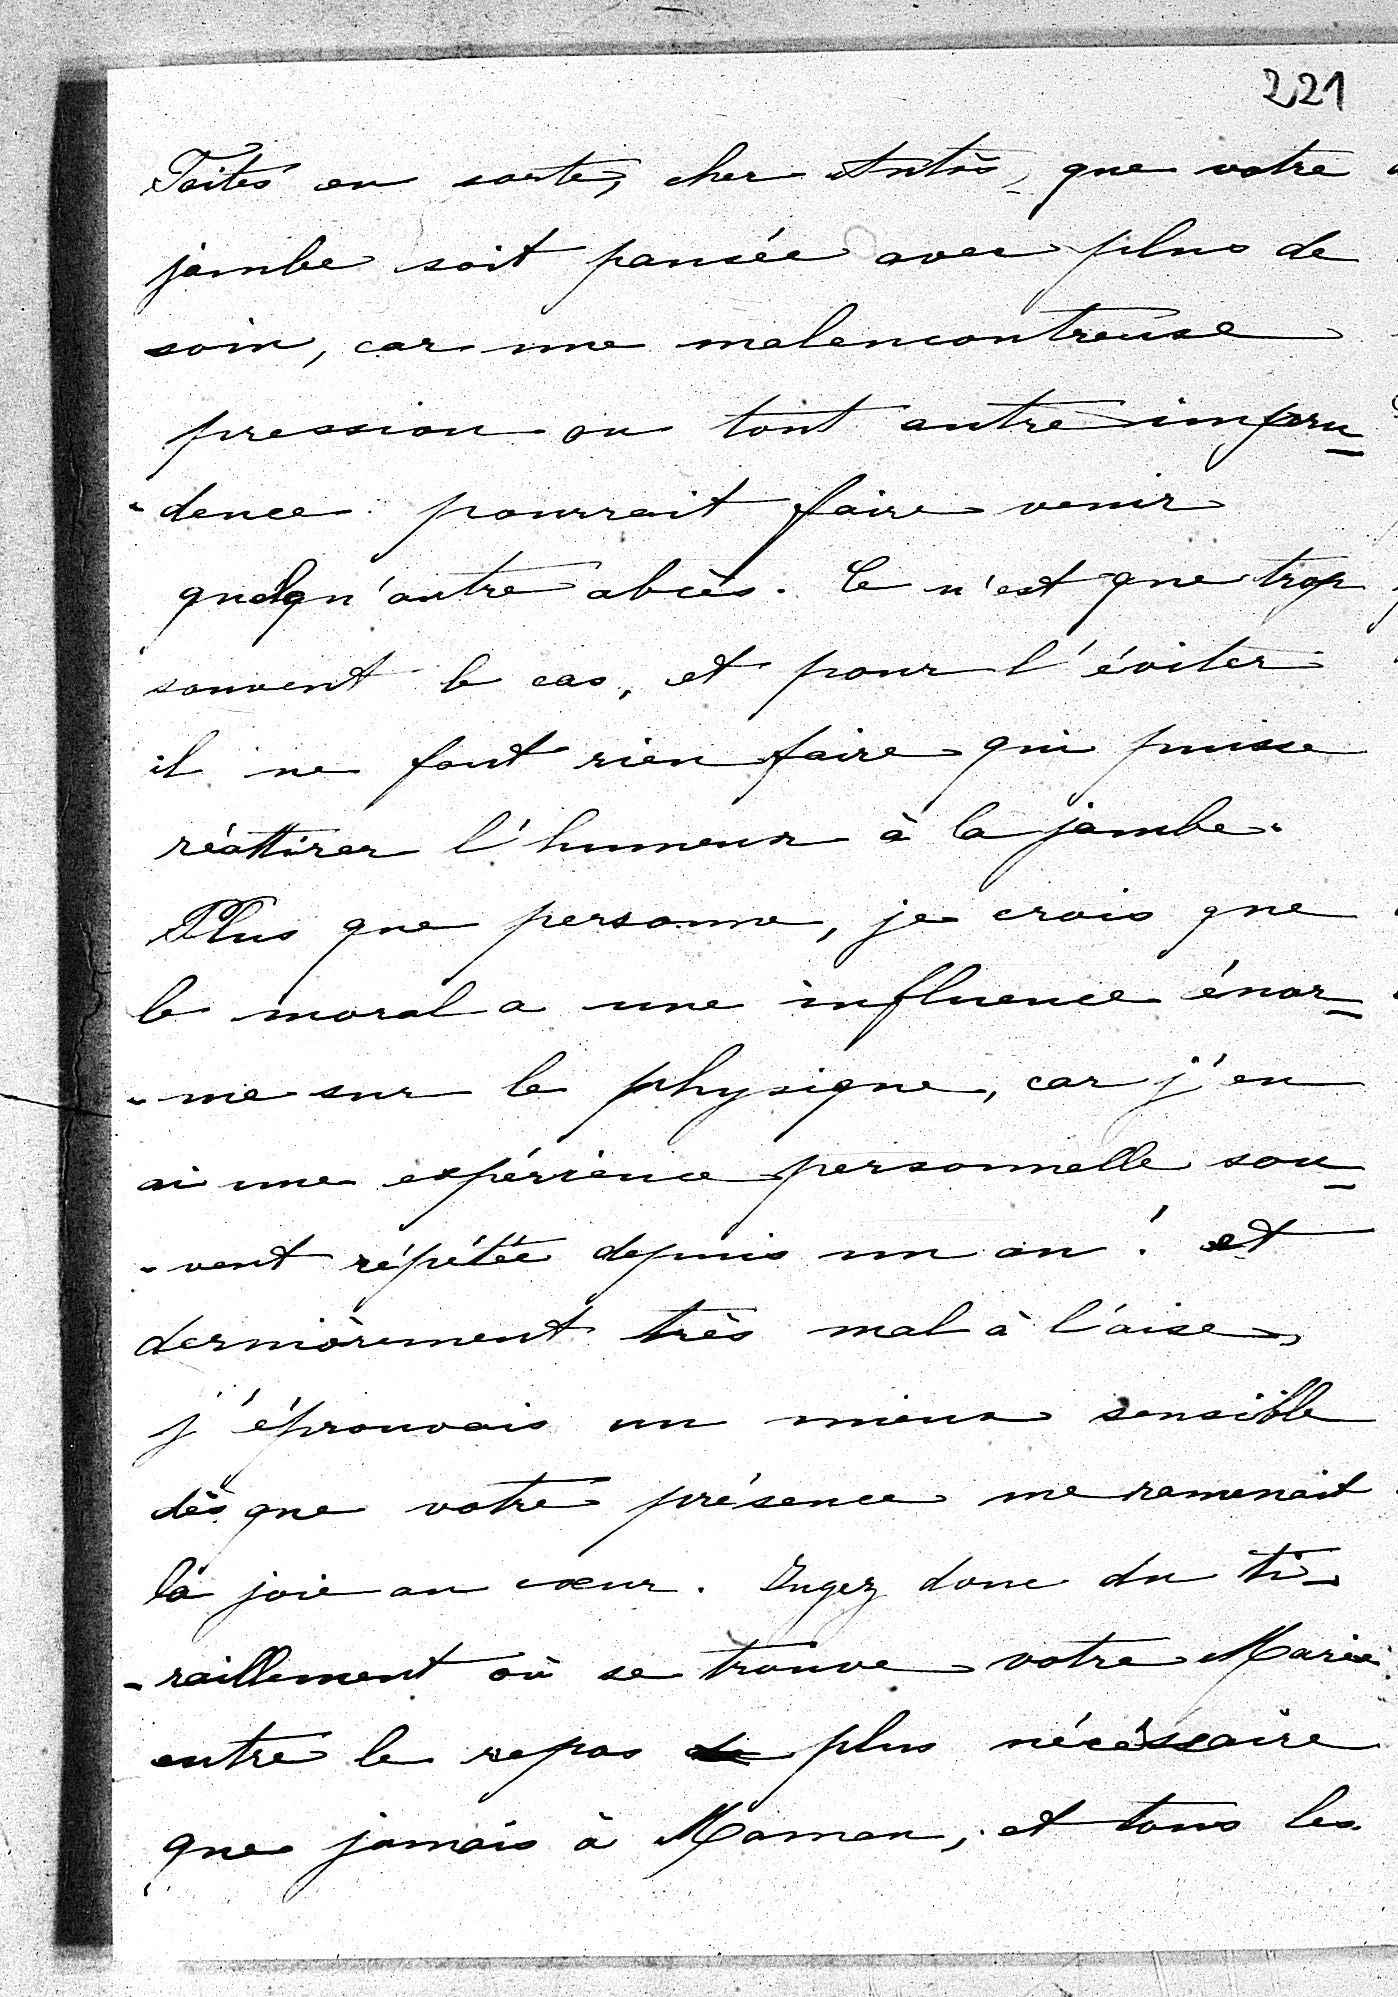 221
Faites en sorte, cher Antès, que votre
jambe soit pansée avec plus de
soin, car une malencontreuse
pression ou tout autre impru-
-dence pourrait faire venir
quelqu'autre abcès. Ce n'est que trop
souvent le cas, et pour l'éviter
il ne faut rien faire qui puisse
réattirer l'humeur à la jambe.
Plus que personne, je crois que
le moral a une influence énor-
-me sur le physique, car j'en
ai une expérience personnelle sou-
-vent répétée depuis un an ! et
dernièrement très mal à l'aise,
j'éprouvais un mieux sensible
dès que votre présence me ramenait
la joie au cœur. Jugez donc du ti-
-raillement où se trouve votre Marie
entre le repos plus nécessaire
que jamais à Maman, et tous les